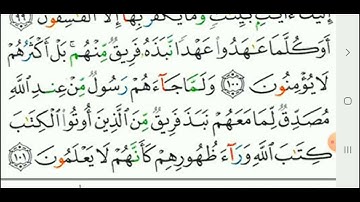 إِلَيْكَ ءَايَٰتٍۭ بَيِّنَٰتٍ ۖ وَمَا يَكْفُرُ بِهَآ إِلَّا ٱلْفَٰسِقُونَ ٩٩
أَوَكُلَّمَا عَٰهَدُوا۟ عَهْدًا نَّبَذَهُۥ فَرِيقٌ مِّنْهُم ۚ بَلْ أَكْثَرُهُمْ
لَا يُؤْمِنُونَ ١٠٠ وَلَمَّا جَآءَهُمْ رَسُولٌ مِّنْ عِندِ ٱللَّهِ
مُصَدِّقٌ لِّمَا مَعَهُمْ نَبَذَ فَرِيقٌ مِّنَ ٱلَّذِينَ أُوتُوا۟ ٱلْكِتَٰبَ
كِتَٰبَ ٱللَّهِ وَرَآءَ ظُهُورِهِمْ كَأَنَّهُمْ لَا يَعْلَمُونَ ١٠١